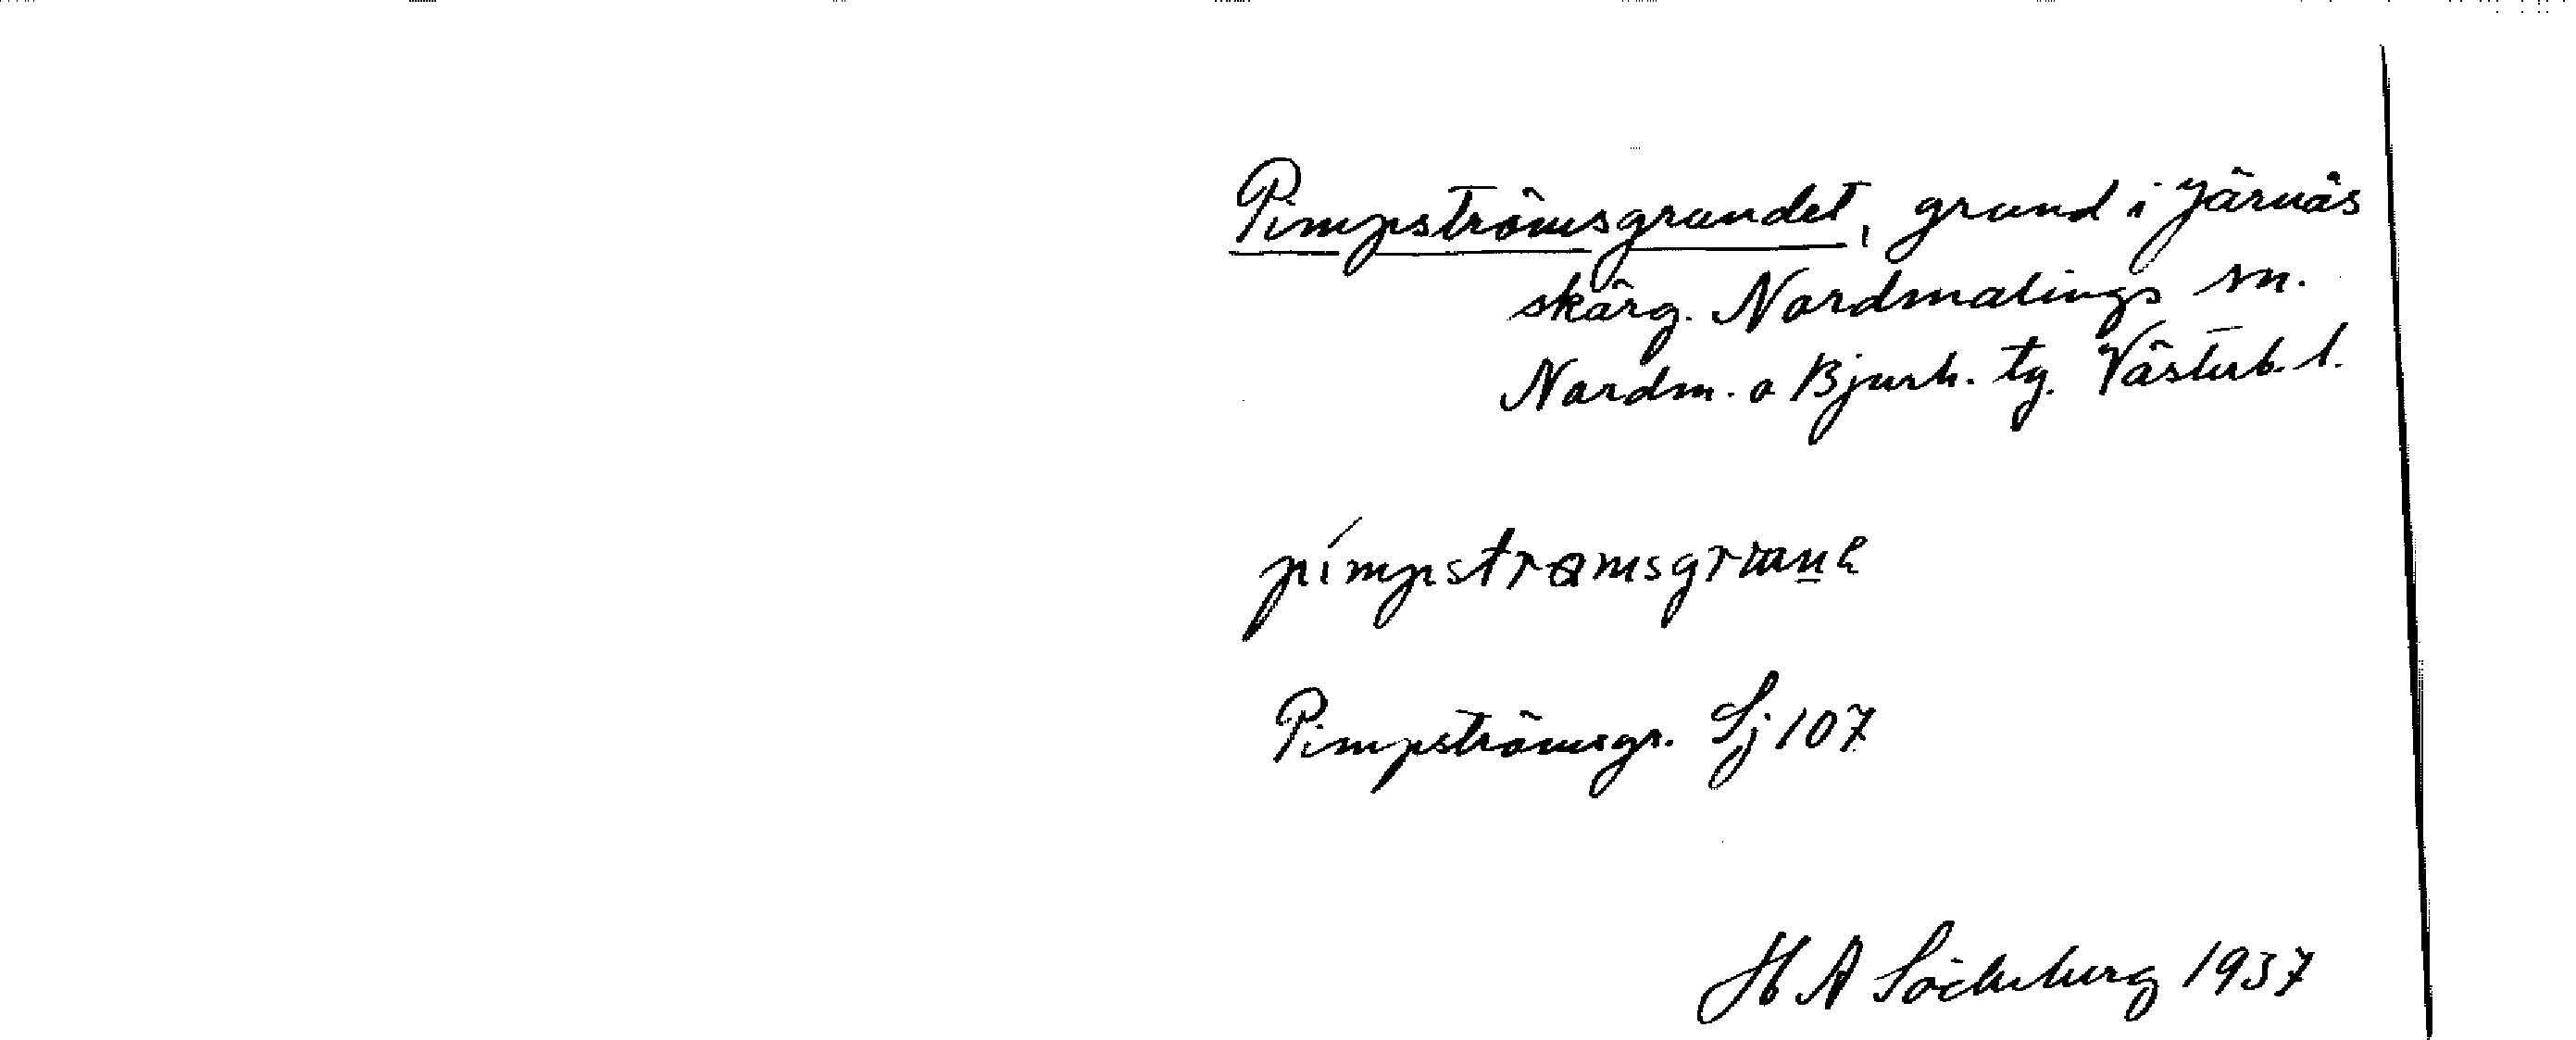 Pimpströmsgrundet, grund i Järnäs
skärg. Nordmalings sn.
Nordm. o Bjurh. tg. Västerb. l.
pímpstrømsgrɯn̲e
Pimpströmsgr. Sj 107
H A Söderberg 1937